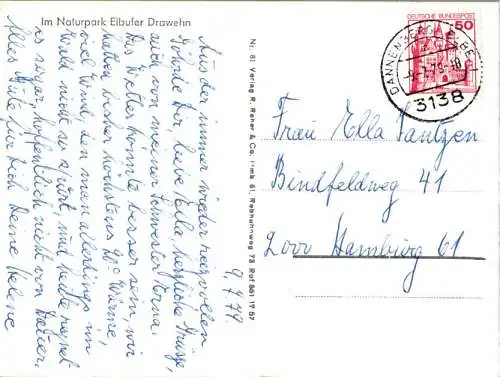 Im Naturpark Elbufer Drawehn
9.7.79.
Aus der immer wieder reizvollen
Göhrde Dir, liebe Ella, herzliche Grüße,
auch von meiner Schwester Erna.
Das Wetter könnte besser sein, wir
hatten bisher höchstens 20° Wärme,
viel Wind, den man allerdings im
Wald nicht so spürt, und heute regnet
es sogar, hoffentlich nicht von Dauer.
Alles Gute für Dich Deine Helene
Nr. 81 Verlag R. Reher & Co. Hmb 61, Rebhuhnweg 73 Ruf 551 17 57
DEUTSCHE BUNDESPOST
50
DANNENBERG
3138
Frau Ella
Bindfeldweg 41
2000 Hamburg 61